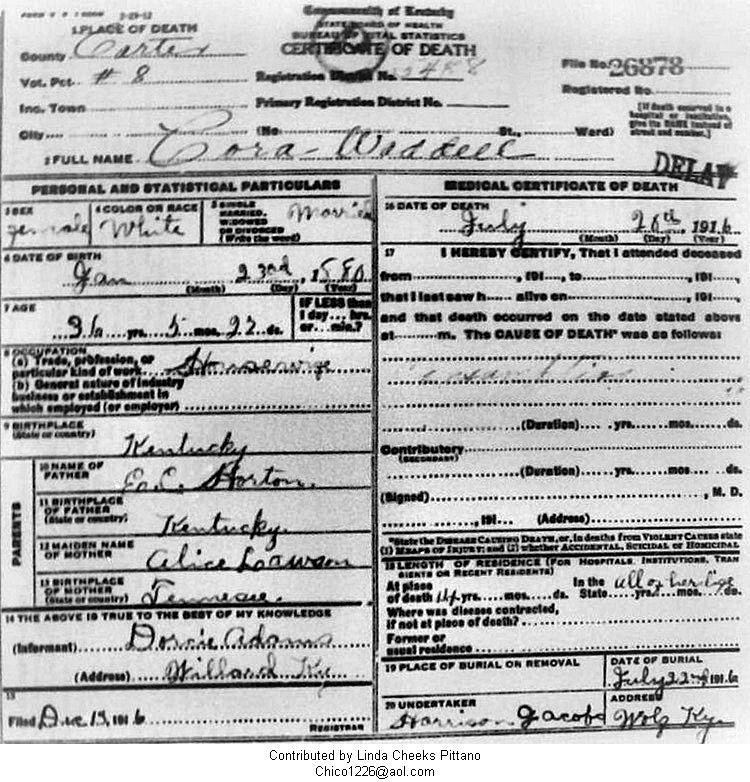 Commonwealth of Kentucky
STATE BOARD OF HEALTH
BUREAU OF VITAL STATISTICS
CERTIFICATE OF DEATH
1 PLACE OF DEATH
County Carter
Vot. Pct. # 8
Inc. Town
City
Registration District No.
Primary Registration District No.
(No. St., Ward)
File No. 26878
Registered No.
[If death occurred in a hospital or institution, give its NAME instead of street and number.]
2 FULL NAME Cora Waddell
PERSONAL AND STATISTICAL PARTICULARS
3 SEX female
4 COLOR OR RACE White
5 SINGLE MARRIED, WIDOWED OR DIVORCED (Write the word) Married
6 DATE OF BIRTH
Jan 23rd, 1880
(Month) (Day) (Year)
7 AGE
36 yrs. 5 mos. 22 ds.
IF LESS than 1 day... hrs. or... min.?
8 OCCUPATION
(a) Trade, profession, or particular kind of work Housewife
(b) General nature of industry business or establishment in which employed (or employer)
9 BIRTHPLACE
(State or country) Kentucky
PARENTS
10 NAME OF FATHER Horton.
11 BIRTHPLACE OF FATHER (State or country) Kentucky.
12 MAIDEN NAME OF MOTHER Alice Lawson
13 BIRTHPLACE OF MOTHER (State or country) Tennesee.
14 THE ABOVE IS TRUE TO THE BEST OF MY KNOWLEDGE
(Informant) Adams
(Address) Willard Ky
15
Filed Dec 15, 1916
REGISTRAR
MEDICAL CERTIFICATE OF DEATH
16 DATE OF DEATH
July 1916
(Month) (Day) (Year)
17 I HEREBY CERTIFY, That I attended deceased
from , 191 , to , 191 ,
that I last saw h alive on , 191 ,
and that death occurred on the date stated above
at m. The CAUSE OF DEATH* was as follows:
(Duration) yrs. mos. ds.
Contributory
(SECONDARY)
(Duration) yrs. mos. ds.
(Signed) , M. D.
, 191 (Address)
*State the DISEASE CAUSING DEATH, or, in deaths from VIOLENT CAUSES state
(1) MEANS OF INJURY; and (2) whether ACCIDENTAL, SUICIDAL or HOMICIDAL
18 LENGTH OF RESIDENCE (FOR HOSPITALS, INSTITUTIONS, TRANSIENTS OR RECENT RESIDENTS)
At place of death yrs. mos. ds.
In the State all of her life yrs. mos. ds.
Where was disease contracted,
if not at place of death?
Former or
usual residence
19 PLACE OF BURIAL OR REMOVAL
DATE OF BURIAL
July 22nd 1916
20 UNDERTAKER
Harrison Jacobs
ADDRESS
Ky
Contributed by Linda Cheeks Pittano
Chico1226@aol.com